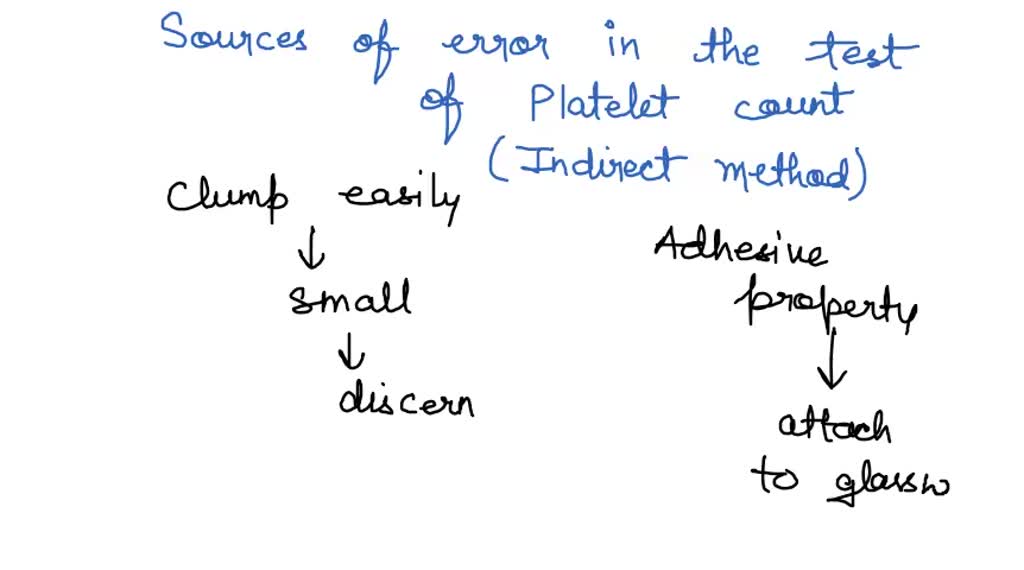 Sources of error in the test
of Platelet count
(Indirect method)
Clump easily
↓
small
↓
discern
Adhesive
property
↓
attach
to glassw